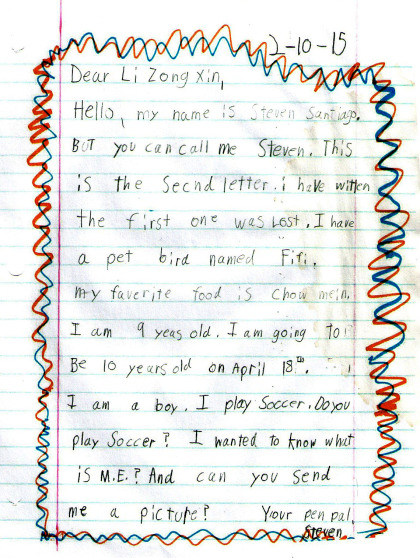 2-10-15
Dear Li Zong Xin,
Hello, my name is Steven Santiago.
BUT you can call me Steven. This
is the Secnd letter. i have witten
the first one was Lost. I have
a pet bird named Fifi.
my faverite food is chow mein.
I am 9 yeas old. I am going to
Be 10 years old on April 18th.
I am a boy. I play Soccer. Do you
play Soccer? I wanted to know what
is M.E.? And can you send
me a picture? Your pen pal,
Steven